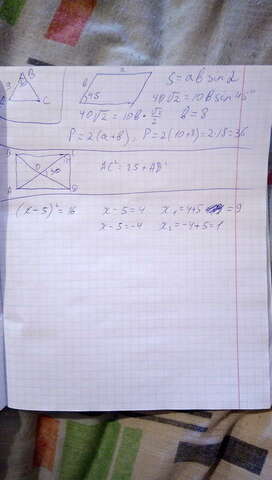 B
3
C
a
b
45
S = ab sin α
40√2 = 10b sin 45°
40√2 = 10b · √2/2    b = 8
P = 2(a+b), P = 2(10+8) = 2·18 = 36
O
AC² = 25 + AB²
(x-5)² = 16    x-5=4    x₁=4+5=9
x-5=-4    x₂=-4+5=1